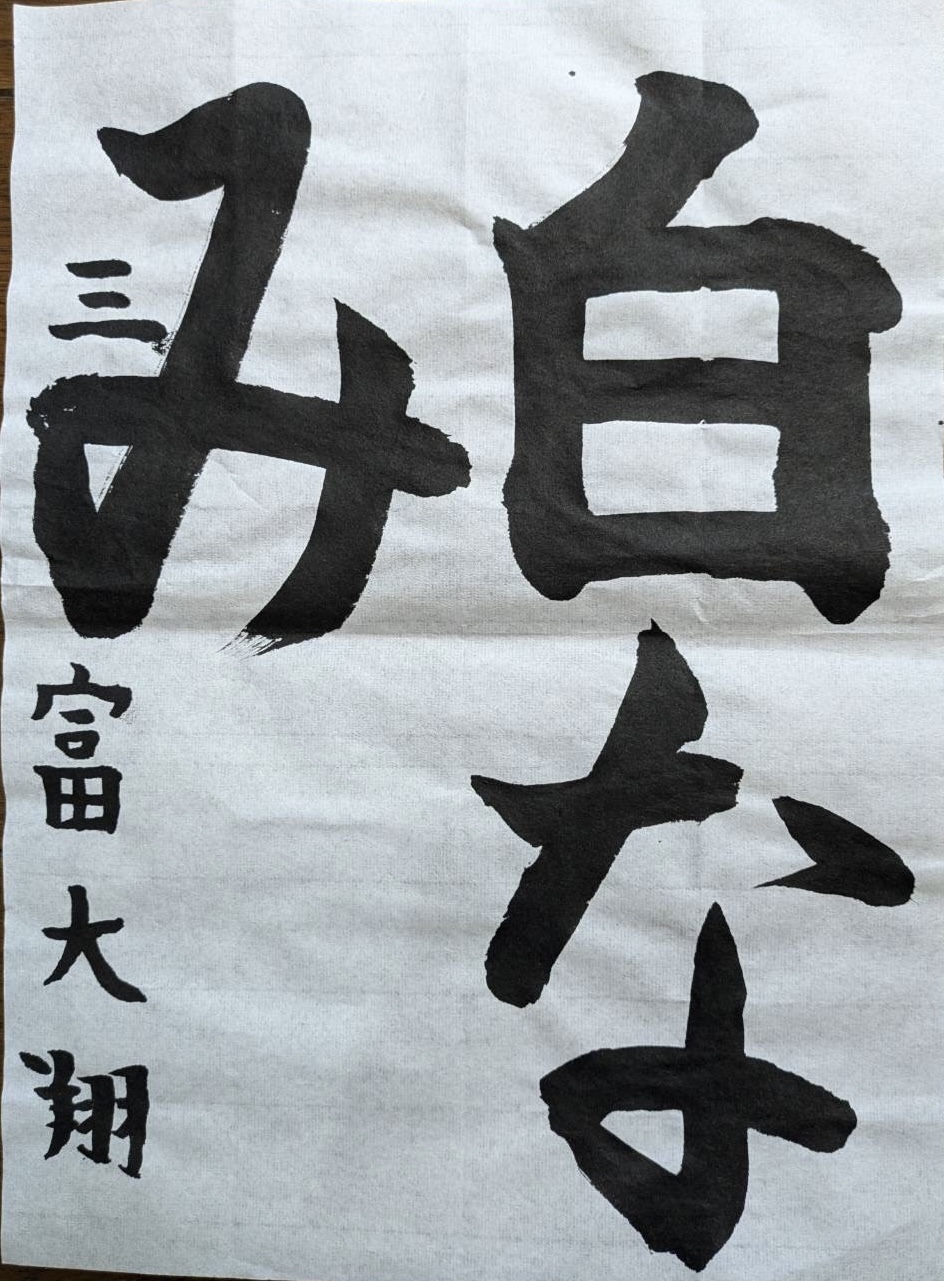 白な
み
三 富大翔